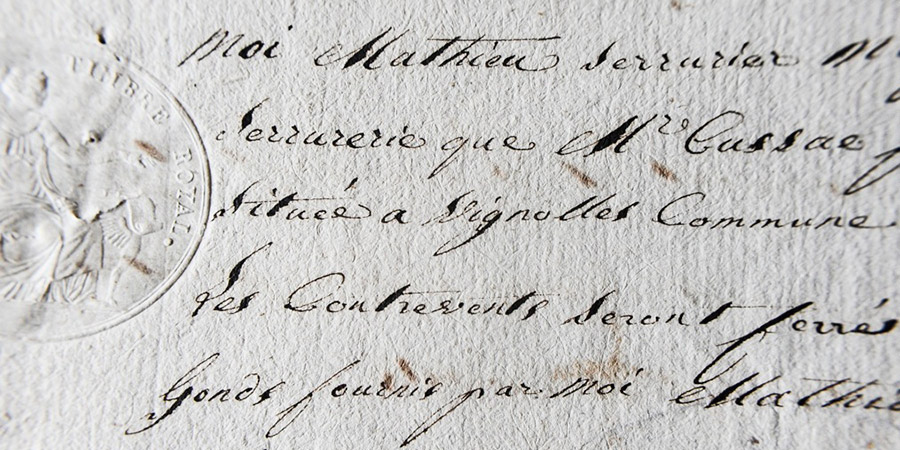 TIMBRE ROYAL.
Moi Mathieu Serrurier
Serrurerie que Mr Cussac
Située a Vignolles Commune
Les Contrevents Seront ferrés
Gonds fournis par Moi Mathie